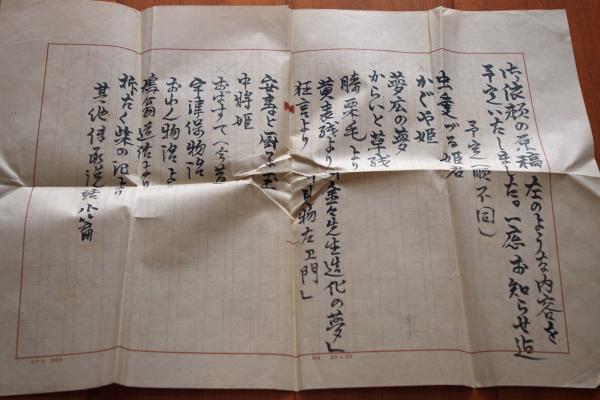 御依頼の原稿左のような内容を
予定いたしました。一応お知らせ迄
予定(順不同)
虫愛づる姫君
かぐや姫
夢応の夢
からいと草紙
膝栗毛より
黄表紙より「金々先生造化の夢」
狂言より「目物左エ門」
安寿と厨子王
中将姫
おばすて(今昔
宇津保物語
お伽物語より
鳩翁道話より
折たく柴の記より
其他伝説